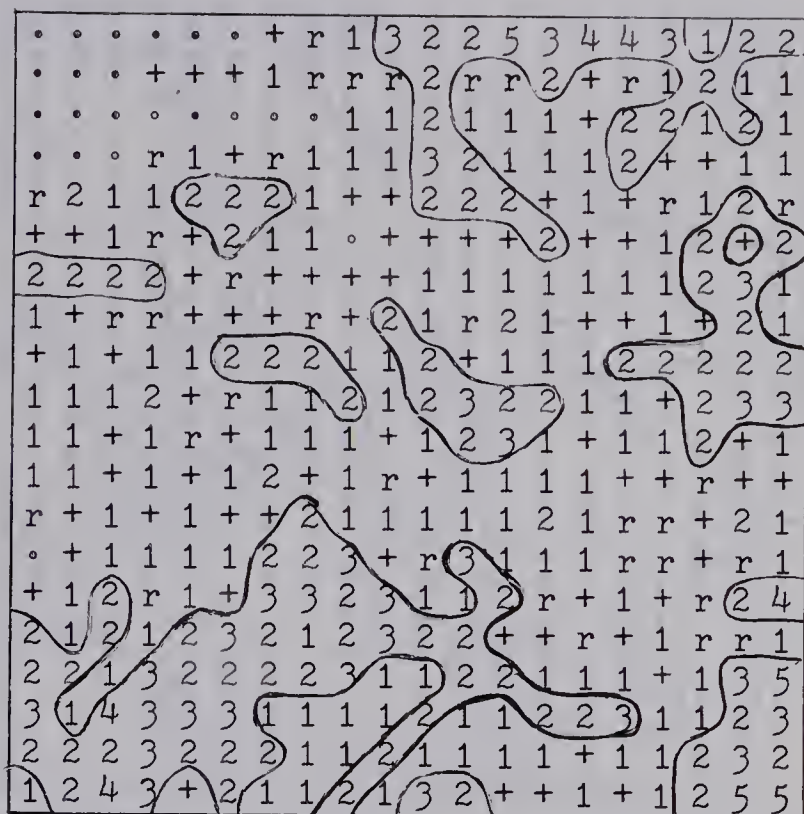 • • • • • • + r 1 3 2 2 5 3 4 4 3 1 2 2
• • • + + + 1 r r r 2 r r 2 + r 1 2 1 1
• • • ∘ • ∘ ∘ • 1 1 2 1 1 1 + 2 2 1 2 1
• • ∘ r 1 + r 1 1 1 3 2 1 1 1 2 + + 1 1
r 2 1 1 2 2 2 1 + + 2 2 2 + 1 + r 1 2 r
+ + 1 r + 2 1 1 ∘ + + + + 2 + + 1 2 + 2
2 2 2 2 + r + + + + 1 1 1 1 1 1 1 2 3 1
1 + r r + + + r + 2 1 r 2 1 + + 1 + 2 1
+ 1 + 1 1 2 2 2 1 1 2 + 1 1 1 2 2 2 2 2
1 1 1 2 + r 1 1 2 1 2 3 2 2 1 1 + 2 3 3
1 1 + 1 r + 1 1 1 + 1 2 3 1 + 1 1 2 + 1
1 1 + 1 + 1 2 + 1 r + 1 1 1 1 + + r + +
r + 1 + 1 + + 2 1 1 1 1 1 2 1 r r + 2 1
∘ + 1 1 1 1 2 2 3 + r 3 1 1 1 r r + r 1
+ 1 2 r 1 + 3 3 2 3 1 1 2 r + 1 + r 2 4
2 1 2 1 2 3 2 1 2 3 2 2 + + r + 1 r r 1
2 2 1 3 2 2 2 2 3 1 1 2 2 1 1 1 + 1 3 5
3 1 4 3 3 3 1 1 1 1 2 1 1 2 2 3 1 1 2 3
2 2 2 3 2 2 2 1 1 2 1 1 1 1 + 1 1 2 3 2
1 2 4 3 + 2 1 1 2 1 3 2 + + 1 + 1 2 5 5